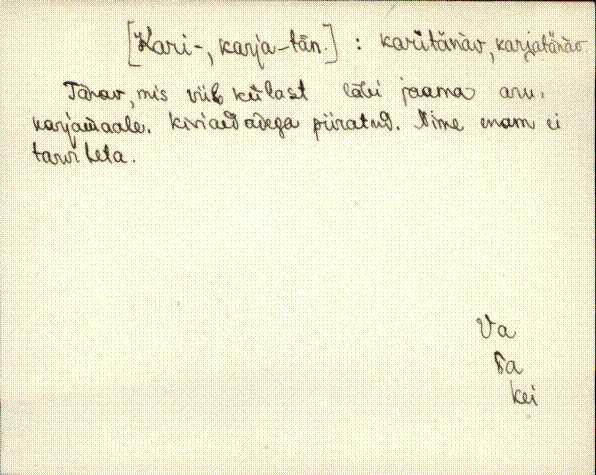 [Kari-, karja-tän.] : karitänàv, karjatänàv
Tänav, mis viib külast läbi jaama aru.
karjamaale. Kiviaedadega piiratud. Nime enam ei
tarviteta.
Va
Sa
kei